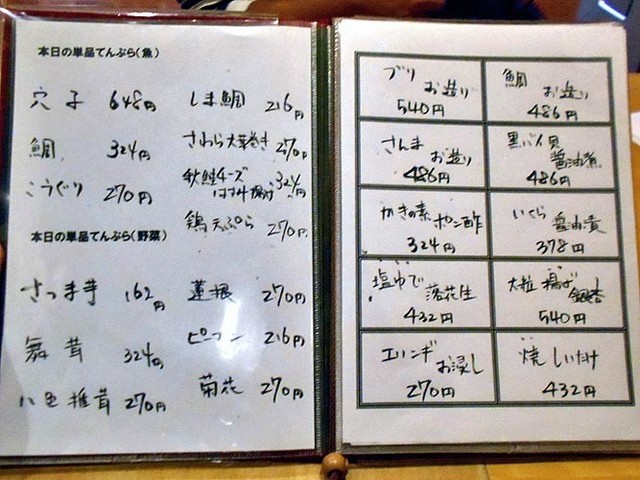 本日の単品てんぷら(魚)
穴子 648円
鯛 324円
こうぐり 270円
しま鯛 216円
さわら大葉巻き 270円
秋鮭チーズ
はさみ揚げ 324円
鶏天ぷら 270円
本日の単品てんぷら(野菜)
さつま芋 162円
舞茸 324円
椎茸 270円
蓮根 270円
ピーマン 216円
菊花 270円
ブリ お造り
540円
鯛 お造り
486円
さんま お造り
486円
黒バイ貝 醤油煮
486円
かきの素 ポン酢
324円
いくら 醤油漬
378円
塩ゆで 落花生
432円
大粒 揚げ 銀杏
540円
エリンギ お浸し
270円
焼しいたけ
432円